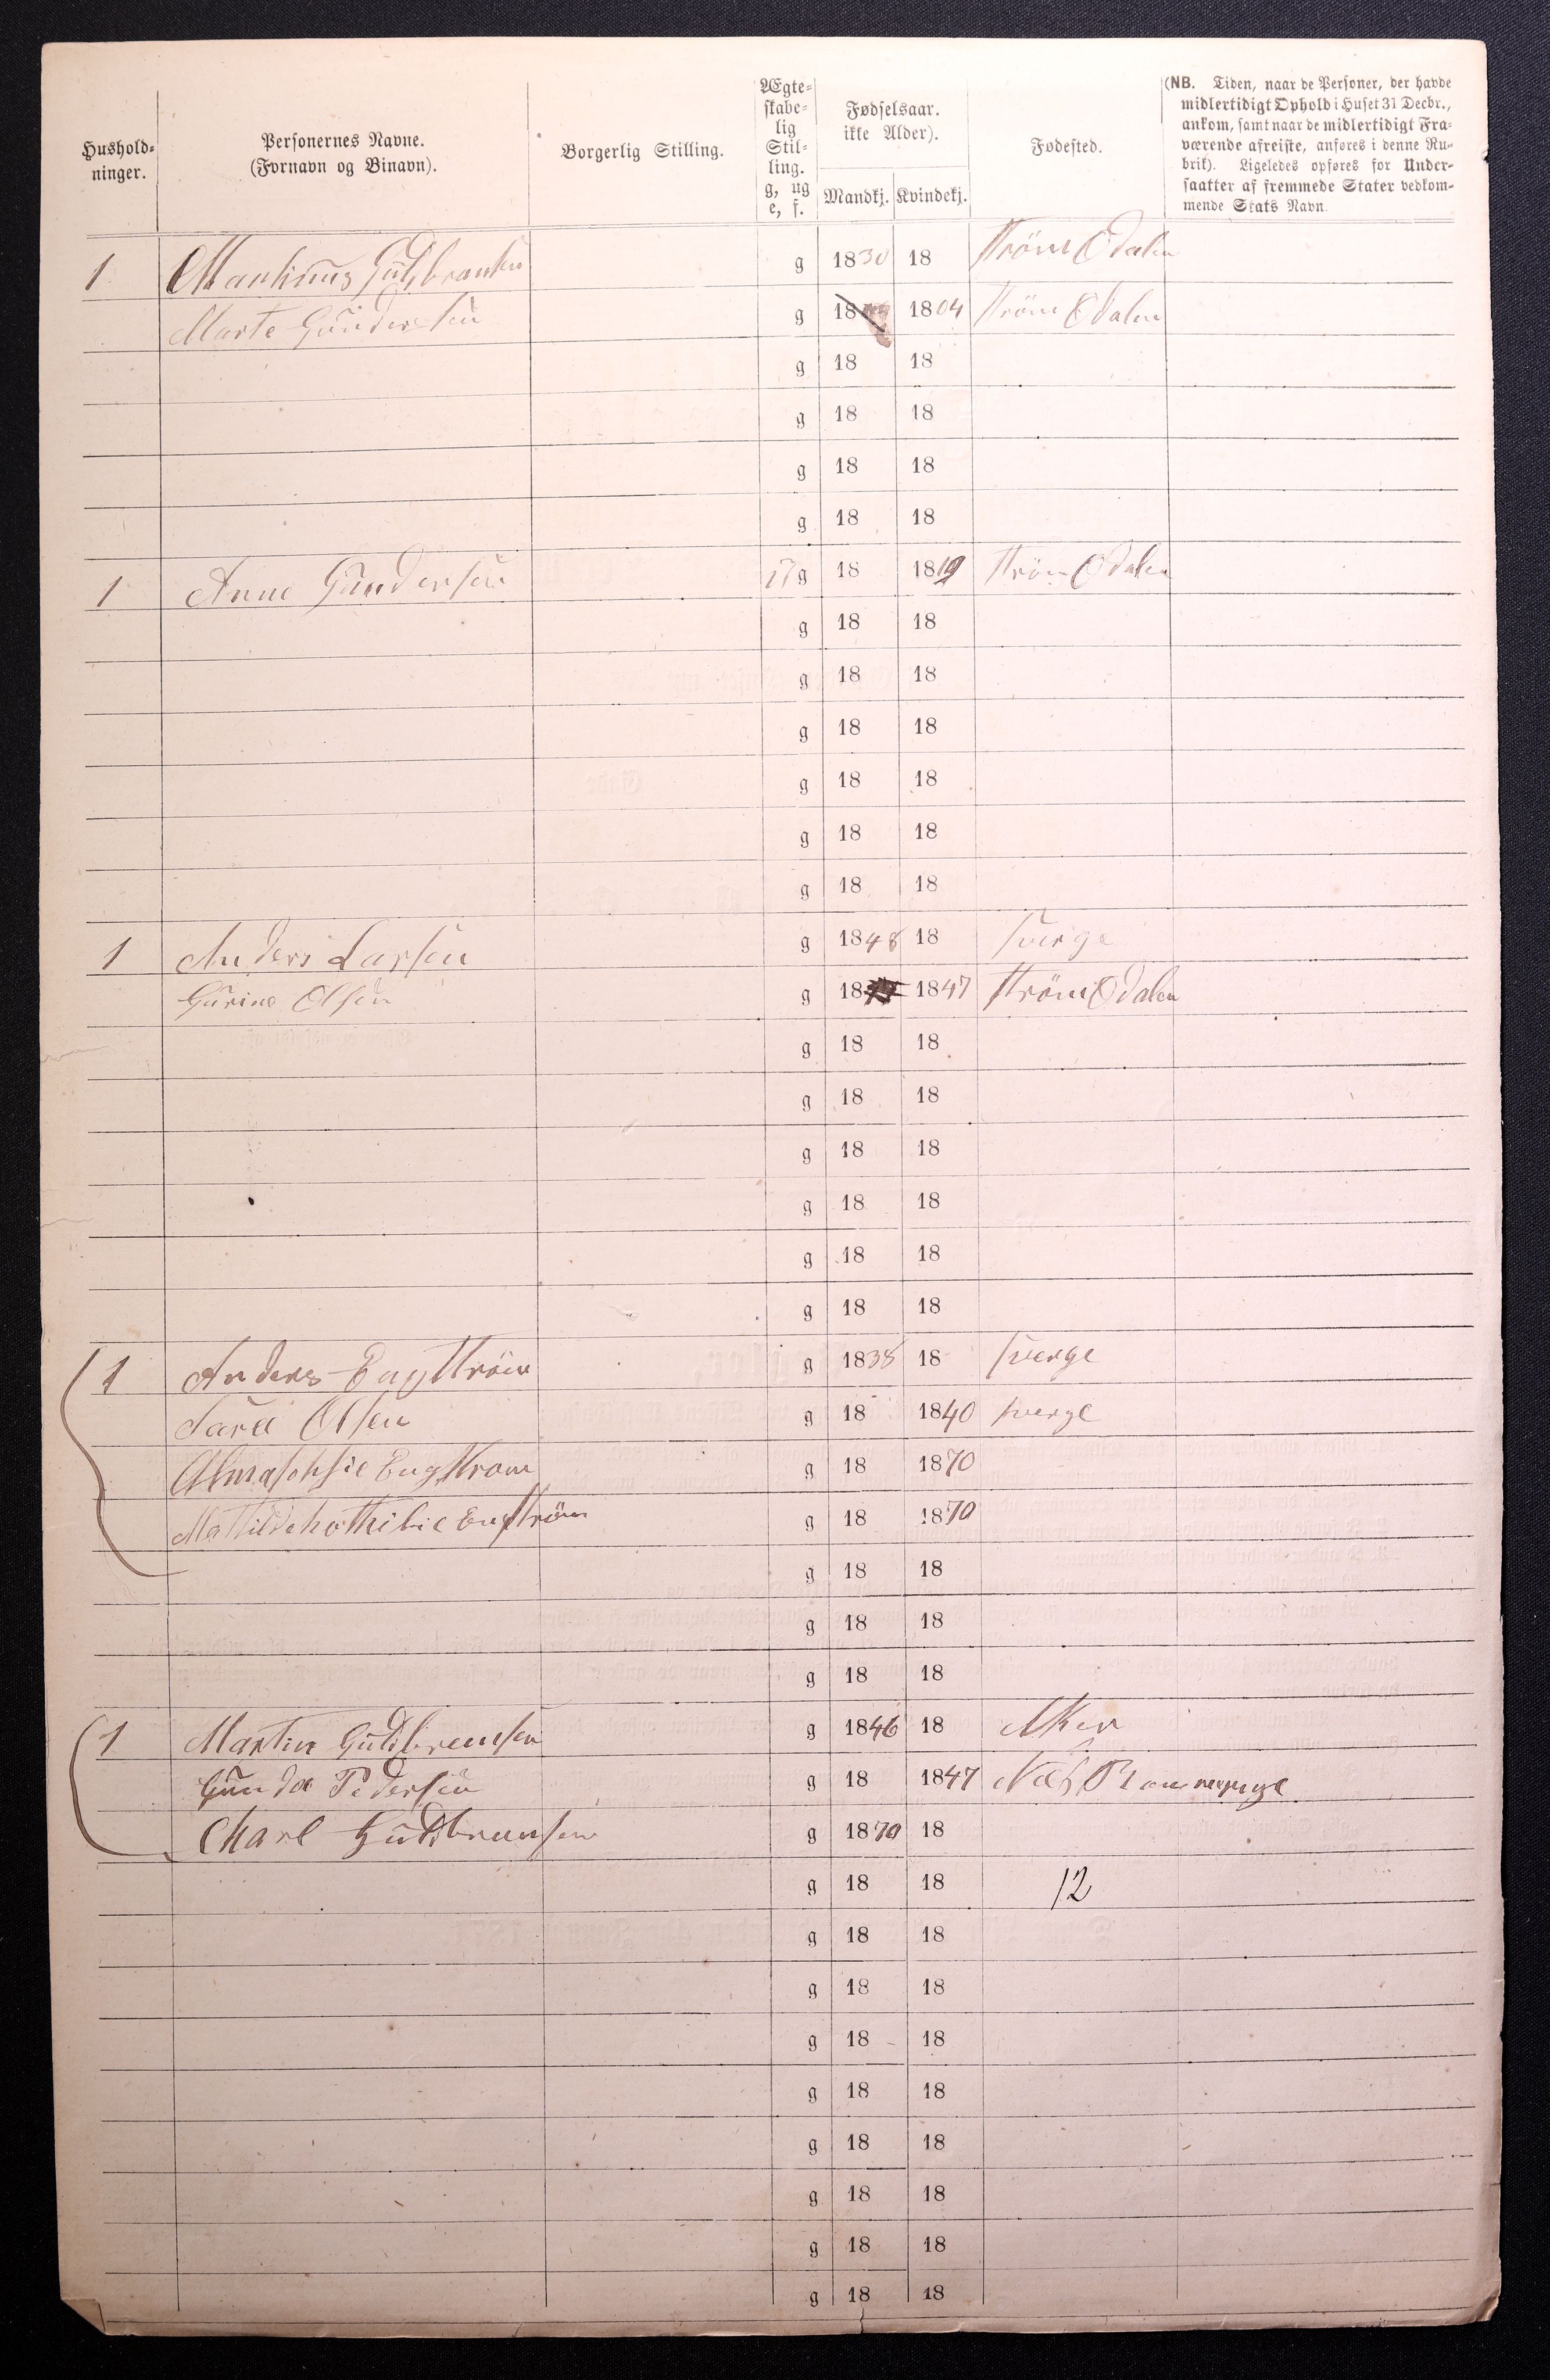 Hushold-
ninger.
Personernes Navne.
(Fornavn og Binavn).
Borgerlig Stilling.
Ægte-
skabe-
lig
Stil-
ling.
g, ug
e, f.
Fødselsaar.
ikke Alder).
Mandkj. Kvindekj.
Fødested.
(NB. Tiden, naar de Personer, der havde
midlertidigt Ophold i Huset 31 Decbr.,
ankom, samt naar de midlertidigt Fra-
værende afreiste, anføres i denne Ru-
brik). Ligeledes opføres for Under-
saatter af fremmede Stater vedkom-
mende Stats Navn.
1 Marthinus Gulbransen g 1830 18 Ströms Odalen
Marte Gundersen g 18 1804 Ström Odalen
g 18 18
g 18 18
g 18 18
g 18 18
1 Anne Gundersen g 18 1819 Ström Odalen
g 18 18
g 18 18
g 18 18
g 18 18
g 18 18
g 18 18
1 Anders Larsen g 1848 18 Sverge
Gurine Olsen g 18 1847 Ström Odalen
g 18 18
g 18 18
g 18 18
g 18 18
g 18 18
g 18 18
1 Anders Engström g 1838 18 Sverge
Sara Olsen g 18 1840 Sverge
Alma Engstrom g 18 1870
Mathilde Engström g 18 1870
g 18 18
g 18 18
g 18 18
1 Martin Guldbrensen g 1846 18 Aker
Gunda Pedersen g 18 1847 Næs Romerige
Charl Guldbransen g 1870 18
g 18 18 12
g 18 18
g 18 18
g 18 18
g 18 18
g 18 18
g 18 18
g 18 18
g 18 18